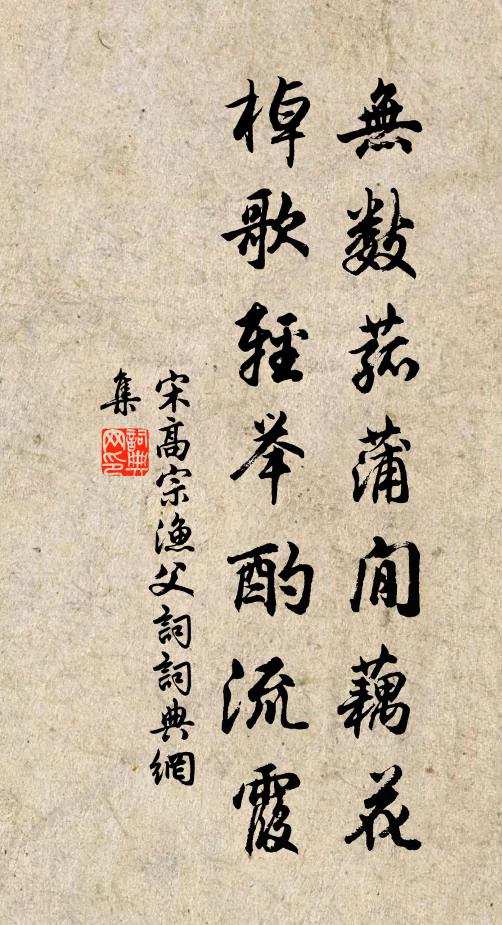 無數菰蒲閒藕花
棹歌輕举酌流霞
宋高宗漁父詞詞典網
集
詞典
网印